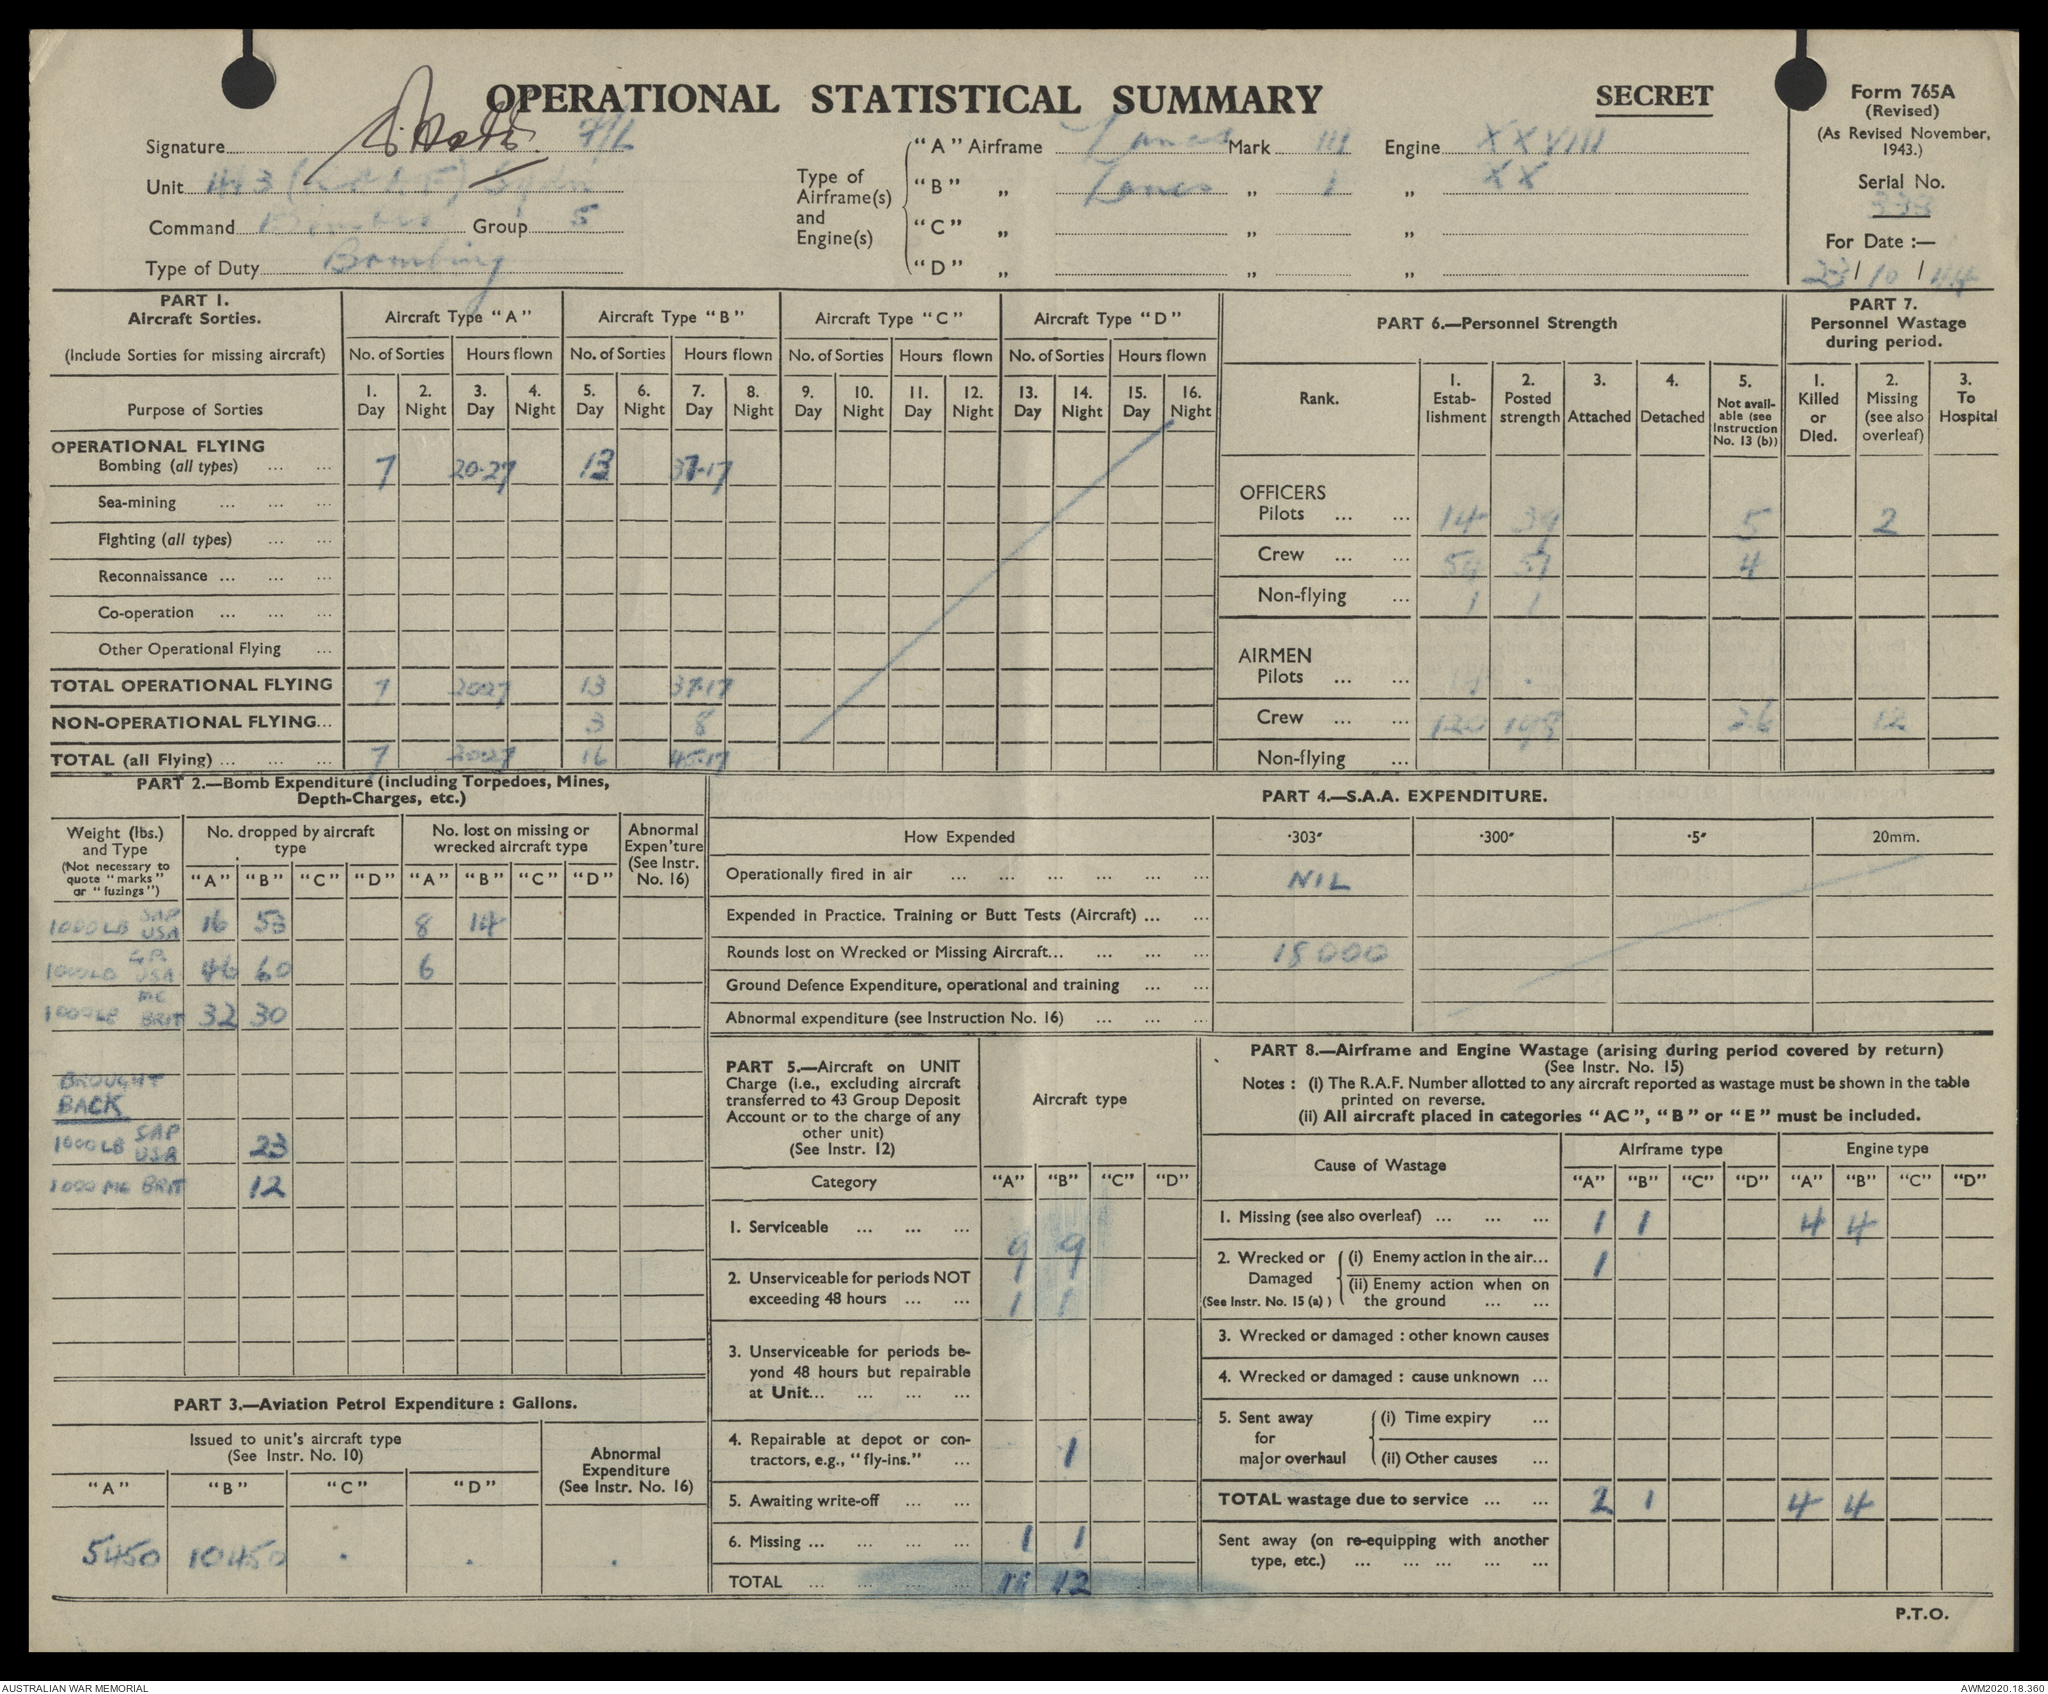 OPERATIONAL STATISTICAL SUMMARY
SECRET
Form 765A
(Revised)
(As Revised November, 1943.)
Serial No.
333
For Date :—
23/10/44
Signature F/L
Unit 463 (RAAF) Sqdn
Command Bomber Group 5
Type of Duty Bombing
Type of Airframe(s) and Engine(s)
"A" Airframe Lancs Mark III Engine XXVIII
"B" „ Lancs „ I „ XX
"C" „ „ „
"D" „ „ „
PART 1.
Aircraft Sorties.
(Include Sorties for missing aircraft)
Aircraft Type "A" Aircraft Type "B" Aircraft Type "C" Aircraft Type "D"
No. of Sorties Hours flown No. of Sorties Hours flown No. of Sorties Hours flown No. of Sorties Hours flown
Purpose of Sorties
1. Day 2. Night 3. Day 4. Night 5. Day 6. Night 7. Day 8. Night 9. Day 10. Night 11. Day 12. Night 13. Day 14. Night 15. Day 16. Night
OPERATIONAL FLYING
Bombing (all types) ... ... 7 20·27 13 37·17
Sea-mining ... ... ...
Fighting (all types) ... ...
Reconnaissance ... ... ...
Co-operation ... ... ...
Other Operational Flying ...
TOTAL OPERATIONAL FLYING 7 2027 13 37·17
NON-OPERATIONAL FLYING... 3 8
TOTAL (all Flying) ... ... ... 7 2027 16 45·17
PART 6.—Personnel Strength
Rank.
1. Estab-lishment
2. Posted strength
3. Attached
4. Detached
5. Not avail-able (see Instruction No. 13 (b))
PART 7.
Personnel Wastage during period.
1. Killed or Died.
2. Missing (see also overleaf)
3. To Hospital
OFFICERS
Pilots ... ... 14 39 5 2
Crew ... ... 54 57 4
Non-flying ... 1 1
AIRMEN
Pilots ... ...
Crew ... ... 120 198 26 12
Non-flying ...
PART 2.—Bomb Expenditure (including Torpedoes, Mines, Depth-Charges, etc.)
Weight (lbs.) and Type
(Not necessary to quote "marks" or "fuzings")
No. dropped by aircraft type
No. lost on missing or wrecked aircraft type
Abnormal Expen'ture (See Instr. No. 16)
"A" "B" "C" "D" "A" "B" "C" "D"
1000LB SAP USA 16 53 8 14
1000LB GP USA 46 60 6
1000LB MC BRIT 32 30
BROUGHT
BACK
1000LB SAP USA 23
1000 MC BRIT 12
PART 3.—Aviation Petrol Expenditure : Gallons.
Issued to unit's aircraft type
(See Instr. No. 10)
Abnormal Expenditure
(See Instr. No. 16)
"A" "B" "C" "D"
5450 10450 . . .
PART 4.—S.A.A. EXPENDITURE.
How Expended ·303″ ·300″ ·5″ 20mm.
Operationally fired in air ... ... ... ... ... ... NIL
Expended in Practice. Training or Butt Tests (Aircraft) ... ...
Rounds lost on Wrecked or Missing Aircraft... ... ... ... 18000
Ground Defence Expenditure, operational and training ... ...
Abnormal expenditure (see Instruction No. 16) ... ... ...
PART 5.—Aircraft on UNIT Charge (i.e., excluding aircraft transferred to 43 Group Deposit Account or to the charge of any other unit)
(See Instr. 12)
Aircraft type
Category "A" "B" "C" "D"
1. Serviceable ... ... ... 9 9
2. Unserviceable for periods NOT exceeding 48 hours ... ... 1 1
3. Unserviceable for periods be-yond 48 hours but repairable at Unit... ... ... ...
4. Repairable at depot or con-tractors, e.g., "fly-ins." ... 1
5. Awaiting write-off ... ...
6. Missing ... ... ... ... 1 1
TOTAL ... ... ... ... 11 12
PART 8.—Airframe and Engine Wastage (arising during period covered by return)
(See Instr. No. 15)
Notes : (i) The R.A.F. Number allotted to any aircraft reported as wastage must be shown in the table printed on reverse.
(ii) All aircraft placed in categories "AC", "B" or "E" must be included.
Cause of Wastage
Airframe type
Engine type
"A" "B" "C" "D" "A" "B" "C" "D"
1. Missing (see also overleaf) ... ... ... 1 1 4 4
2. Wrecked or Damaged (See Instr. No. 15 (a) )
(i) Enemy action in the air... 1
(ii) Enemy action when on the ground ... ...
3. Wrecked or damaged : other known causes
4. Wrecked or damaged : cause unknown ...
5. Sent away for major overhaul
(i) Time expiry ...
(ii) Other causes ...
TOTAL wastage due to service ... ... 2 1 4 4
Sent away (on re-equipping with another type, etc.) ... ... ... ... ...
P.T.O.
AUSTRALIAN WAR MEMORIAL
AWM2020.18.360